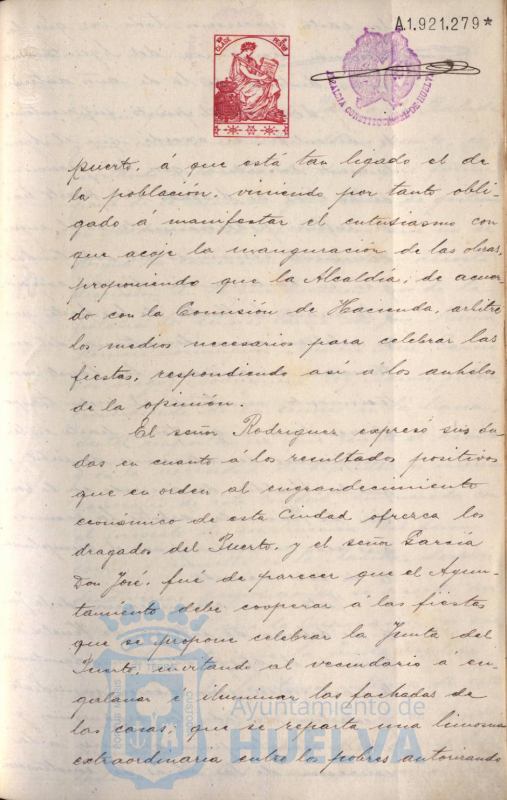 A.1.921.279*
ALCALDIA CONSTITUCIONAL DE HUELVA
puerto, á que está tan ligado el de
la población, viniendo por tanto obli-
gado á manifestar el entusiasmo con
que acoje la inauguración de las obras,
proponiendo que la Alcaldía, de acuer-
do con la Comisión de Hacienda, arbitre
los medios necesarios para celebrar las
fiestas, respondiendo así á los anhelos
de la opinión.
El señor Rodriguez expresó sus du-
das en cuanto á los resultados positivos
que en orden al engrandecimiento
económico de esta Ciudad ofrezca los
dragados del Puerto, y el señor García
Don José, fué de parecer que el Ayun-
tamiento debe cooperar á las fiestas
que se propone celebrar la Junta del
Puerto, invitando al vecindario á en-
galanar é iluminar las fachadas de
las casas, que se reparta una limosna
extraordinaria entre los pobres autorizando
Ayuntamiento de
HUELVA